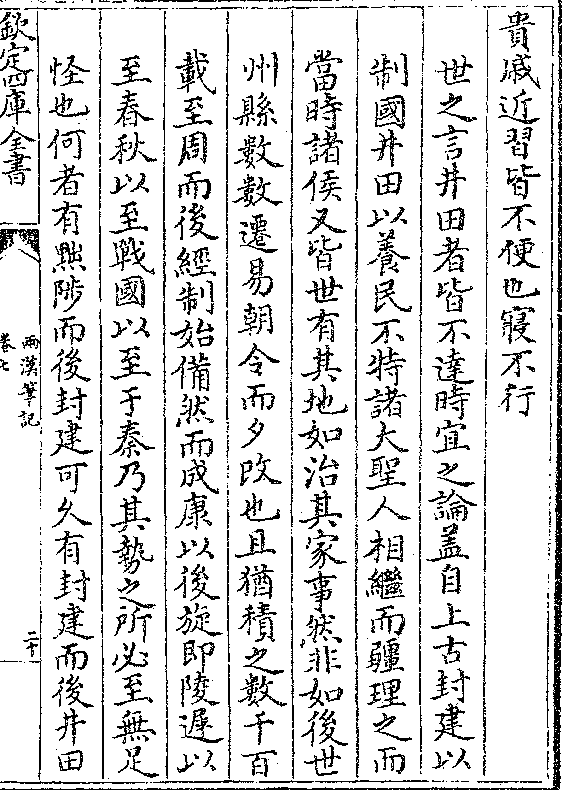 貴戚近習皆不便也寢不行
世之言井田者皆不達時宜之論盖自上古封建以
制國井田以養民不特諸大聖人相繼而疆理之而
當時諸侯又皆世有其地如治其家事然非如後世
州縣數數遷易朝令而夕改也且猶積之數千百
載至周而後經制始備然而成康以後旋即陵遲以
至春秋以至戰國以至于秦乃其勢之所必至無足
怪也何者有黜陟而後封建可久有封建而後井田
欽定四庫全書
兩漢筆記
卷七
二十